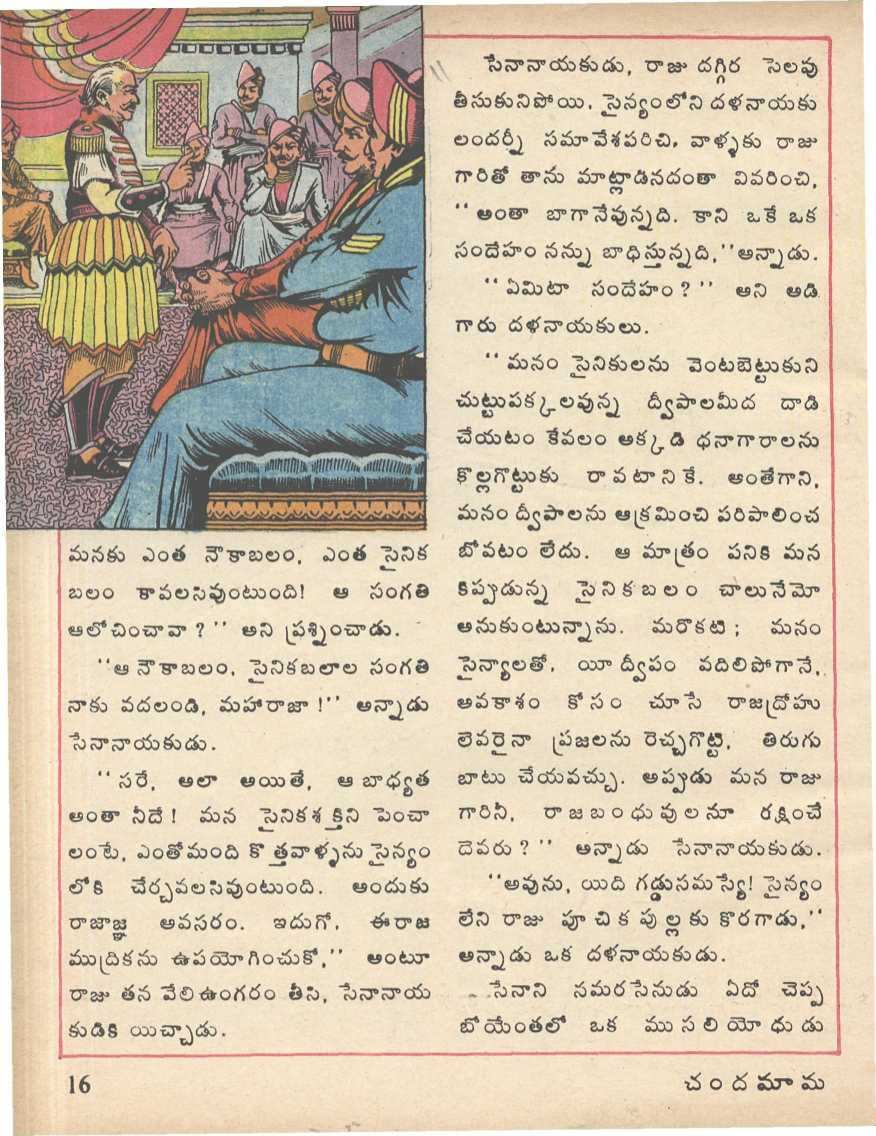 మనకు ఎంత నౌకాబలం, ఎంత సైనిక
బలం కావలసివుంటుంది! ఆ సంగతి
ఆలోచించావా?'' అని ప్రశ్నించాడు.
''ఆ నౌకాబలం, సైనికబలాల సంగతి
నాకు వదలండి, మహారాజా!'' అన్నాడు
సేనానాయకుడు.
''సరే, అలా అయితే, ఆ బాధ్యత
అంతా నీదే! మన సైనికశక్తిని పెంచా
లంటే, ఎంతోమంది కొత్తవాళ్ళను సైన్యం
లోకి చేర్చవలసివుంటుంది. అందుకు
రాజాజ్ఞ అవసరం. ఇదుగో, ఈరాజ
ముద్రికను ఉపయోగించుకో,'' అంటూ
రాజు తన వేలిఉంగరం తీసి, సేనానాయ
కుడికి యిచ్చాడు.
సేనానాయకుడు, రాజు దగ్గిర సెలవు
తీసుకునిపోయి, సైన్యంలోని దళనాయకు
లందర్నీ సమావేశపరిచి, వాళ్ళకు రాజు
గారితో తాను మాట్లాడినదంతా వివరించి,
''అంతా బాగానేవున్నది. కాని ఒకే ఒక
సందేహం నన్ను బాధిస్తున్నది,''అన్నాడు.
''ఏమిటా సందేహం?'' అని అడి
గారు దళనాయకులు.
''మనం సైనికులను వెంటబెట్టుకుని
చుట్టుపక్కలవున్న ద్వీపాలమీద దాడి
చేయటం కేవలం అక్కడి ధనాగారాలను
కొల్లగొట్టుకు రావటానికే. అంతేగాని,
మనం ద్వీపాలను ఆక్రమించి పరిపాలించ
బోవటం లేదు. ఆ మాత్రం పనికి మన
కిప్పుడున్న సైనికబలం చాలునేమో
అనుకుంటున్నాను. మరొకటి; మనం
సైన్యాలతో, యీ ద్వీపం వదిలిపోగానే,
అవకాశం కోసం చూసే రాజద్రోహు
లెవరైనా ప్రజలను రెచ్చగొట్టి, తిరుగు
బాటు చేయవచ్చు. అప్పుడు మన రాజు
గారినీ, రాజబంధువులనూ రక్షించే
దెవరు?'' అన్నాడు సేనానాయకుడు.
''అవును, యిది గడ్డుసమస్యే! సైన్యం
లేని రాజు పూచికపుల్లకు కొరగాడు,''
అన్నాడు ఒక దళనాయకుడు.
సేనాని సమరసేనుడు ఏదో చెప్ప
బోయేంతలో ఒక ముసలియోధుడు
16
చందమామ